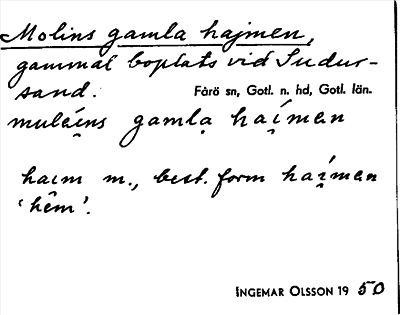 Molins gamla hajmen,
gammal boplats vid Sudur-
sand. Fårö sn, Gotl. n. hd, Gotl. län.
mulái̯ns gamlą hái̯mən
haım m., best. form hái̯mən
'hêm'.
INGEMAR OLSSON 19 50